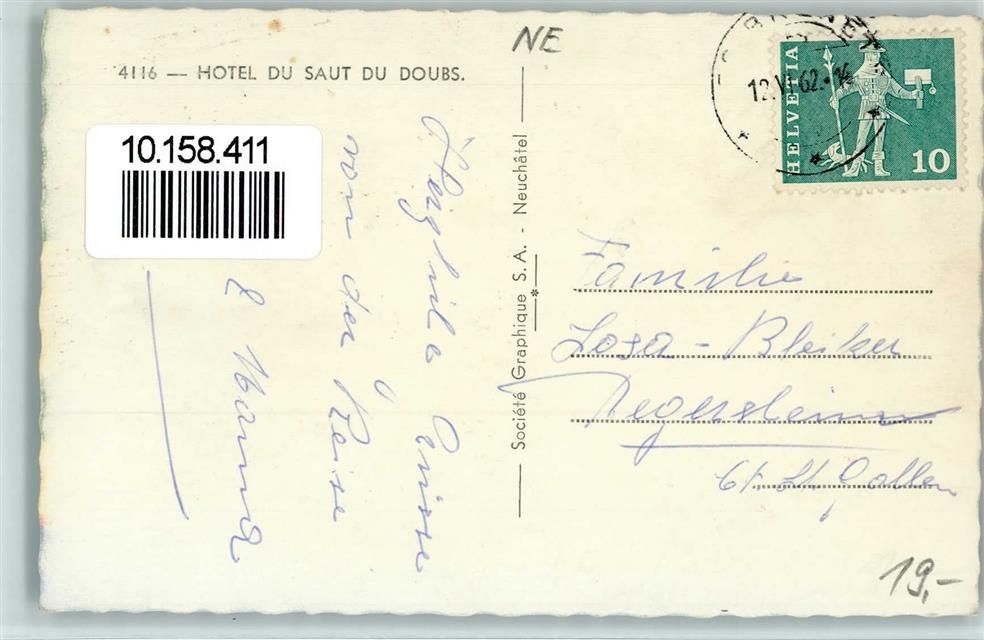 NE
4116 — HOTEL DU SAUT DU DOUBS.
10.158.411
Herzliche Grüsse
von der Reise
Société Graphique S. A. - Neuchâtel
HELVETIA
10
12.VI.62.-14
Familie
Losa - Bleiker
Degersheim
Kt. St. Gallen
19,-